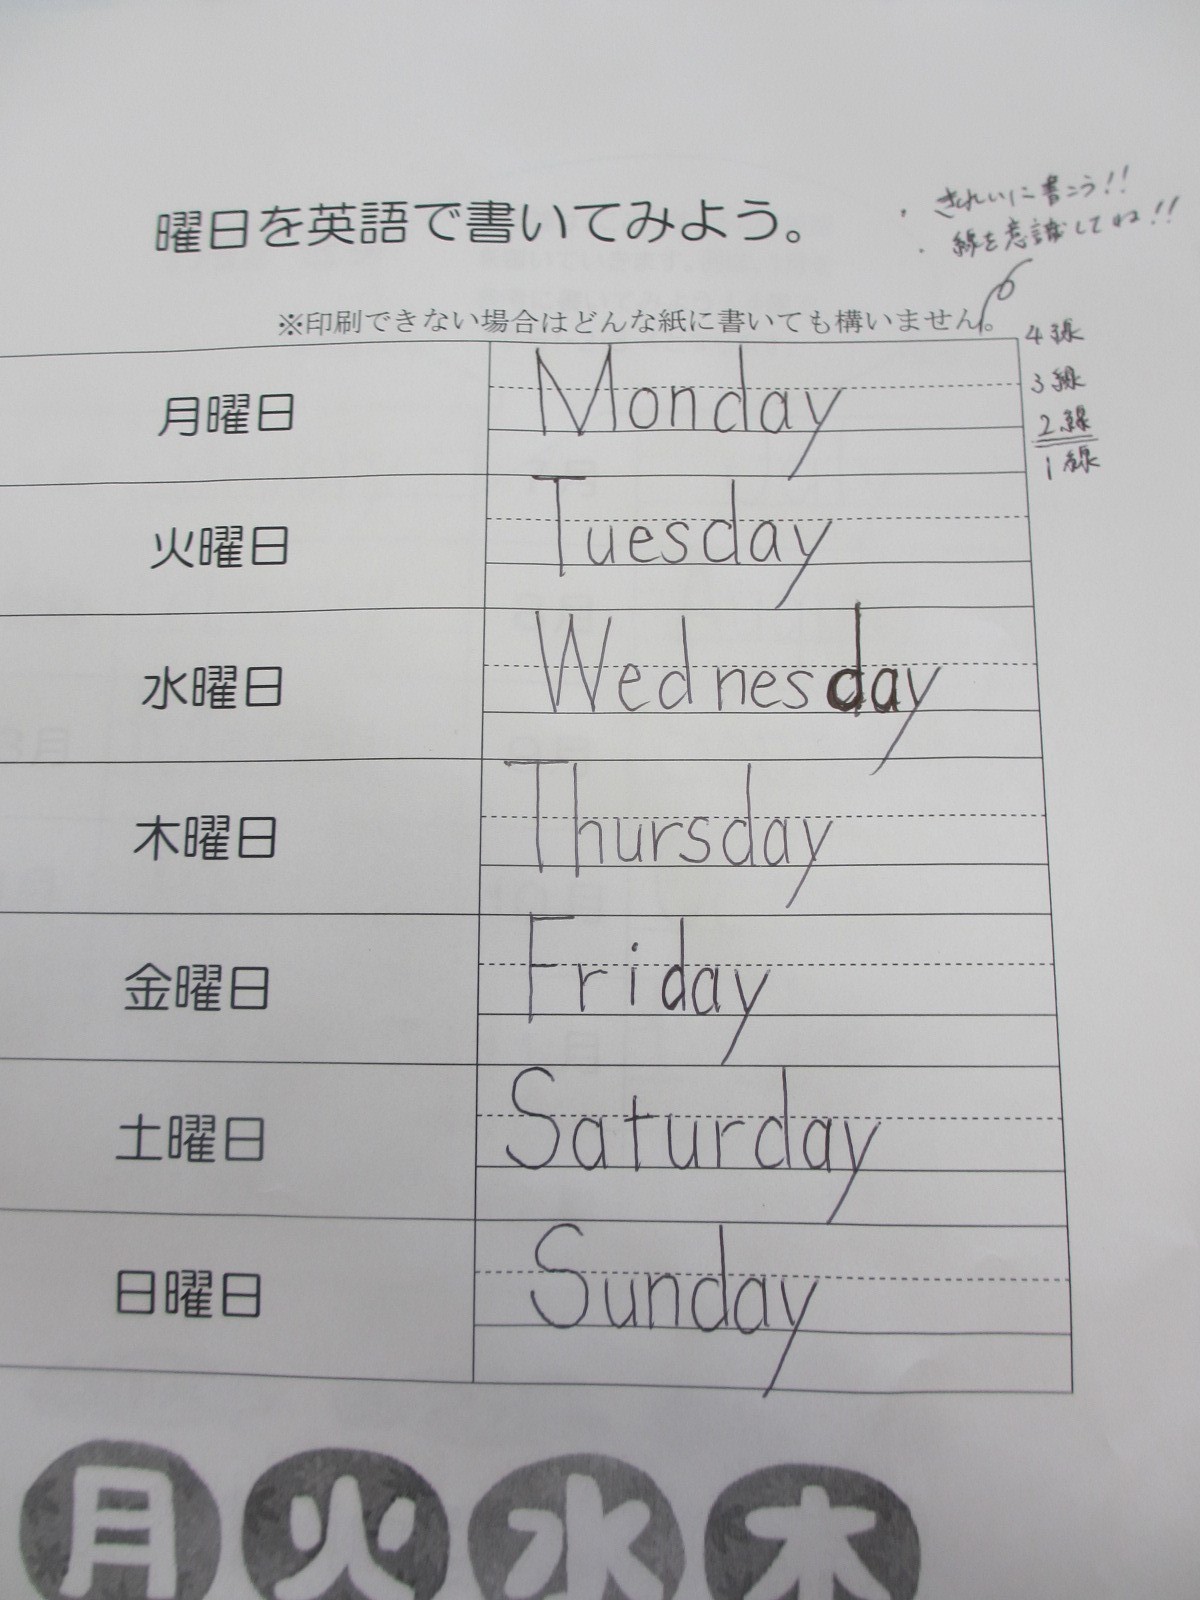 曜日を英語で書いてみよう。
・きれいに書こう!!
・線を意識してね!!
※印刷できない場合はどんな紙に書いても構いません。
4線
3線
2線
1線
月曜日 Monday
火曜日 Tuesday
水曜日 Wednesday
木曜日 Thursday
金曜日 Friday
土曜日 Saturday
日曜日 Sunday
月 火 水 木